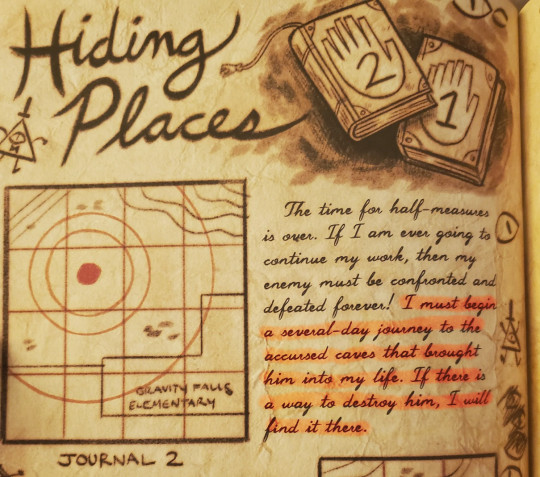 Hiding
Places
2
1
The time for half-measures
is over. If I am ever going to
continue my work, then my
enemy must be confronted and
defeated forever! I must begin
a several-day journey to the
accursed caves that brought
him into my life. If there is
a way to destroy him, I will
find it there.
GRAVITY FALLS
ELEMENTARY
JOURNAL 2